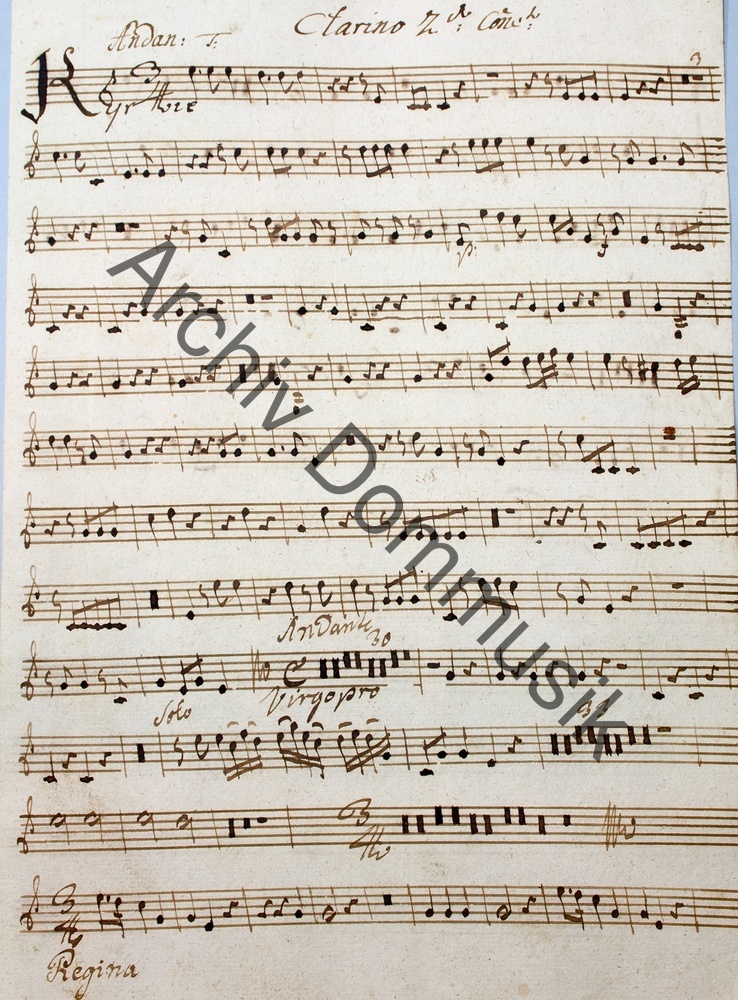 Clarino 2do Conc:to
Andan: T:
3
4
3
Kyrie
p:
f
Andante
30
C
Virgo pro
Solo
3
4
3
4
Regina
Archiv Dommusik